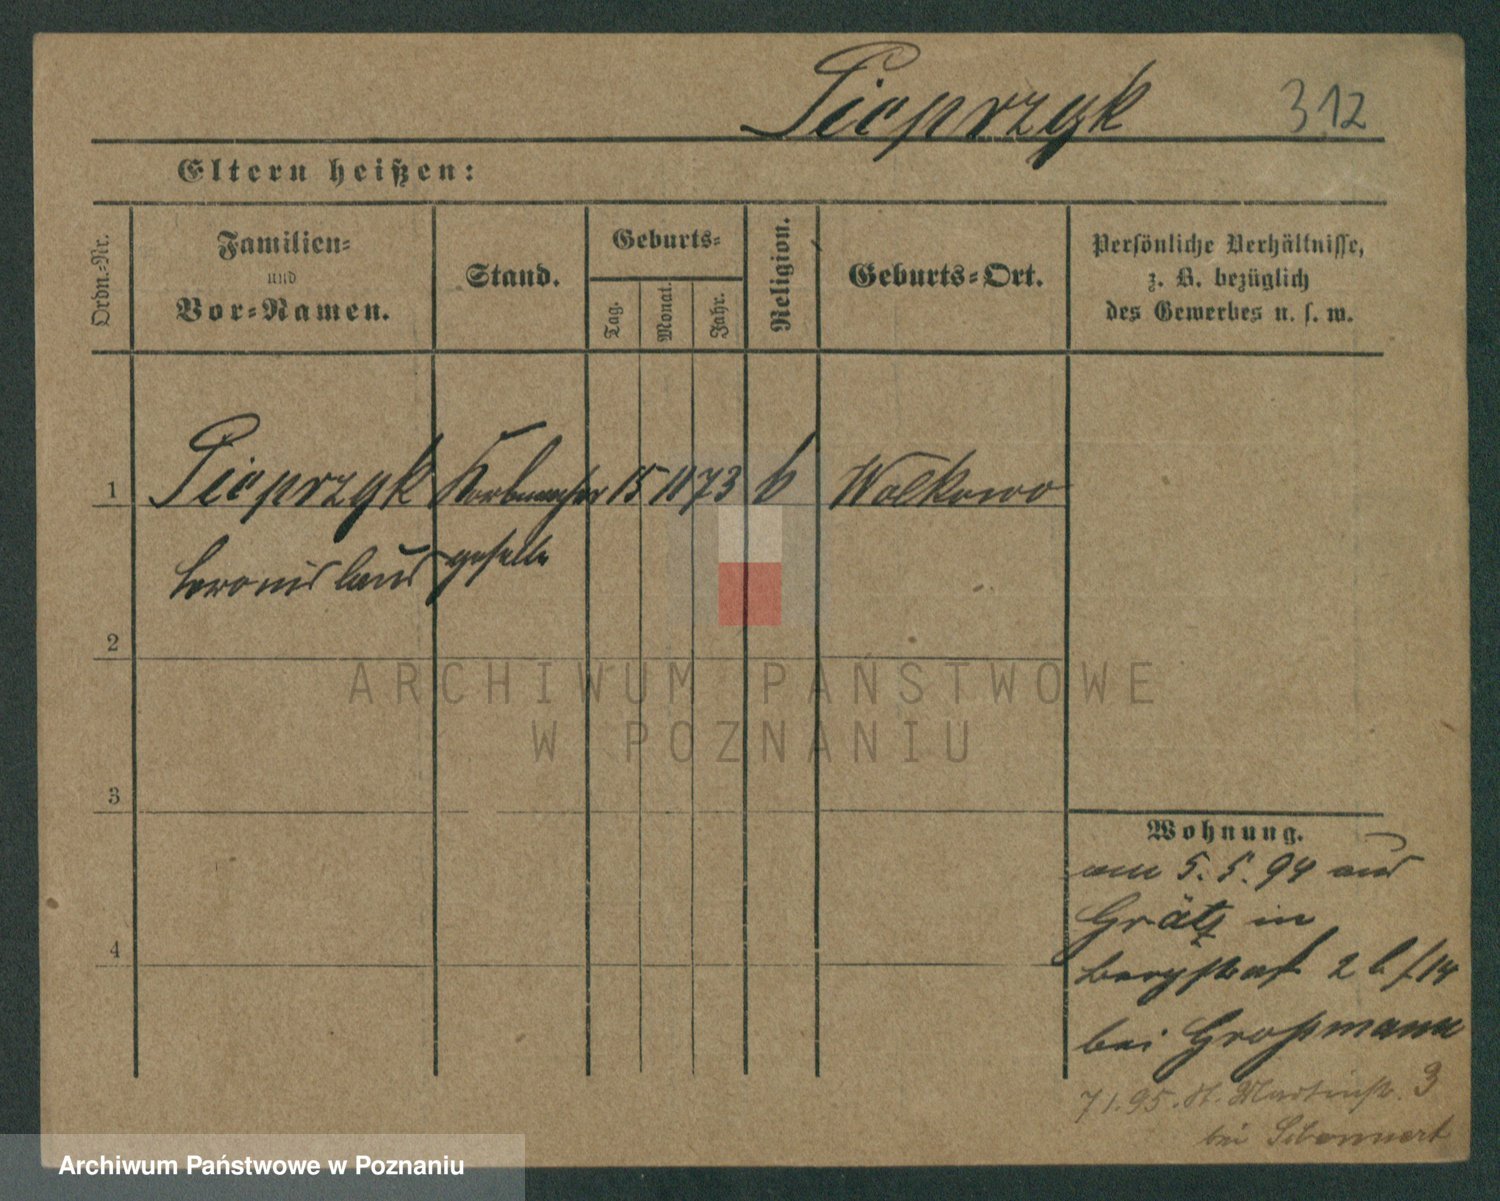 Pieprzyk 312
Eltern heißen:
Ordn.-Nr.
Familien-
und
Vor-Namen.
Stand.
Geburts-
Tag.
Monat.
Jahr.
Religion.
Geburts-Ort.
Persönliche Verhältnisse,
z. B. bezüglich
des Gewerbes u. s. w.
1 Pieprzyk Korbmacher 15 11 73 k Wolkowo
bronislaus geselle
2
3
4
ARCHIWUM PAŃSTWOWE
W POZNANIU
Wohnung.
am 5. 5. 94 aus
Grätz in
bergstraß 2
bei Großmann
7 1. 95. St. Martinstr. 3
bei
Archiwum Państwowe w Poznaniu